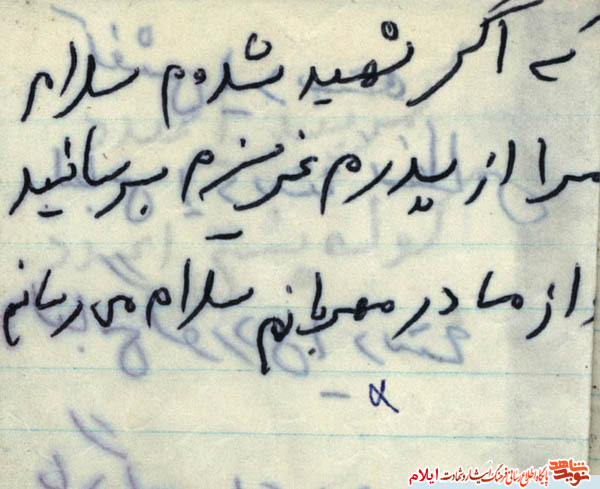 که اگر شهید شدم سلام
مرا از پدرم عزیزم برسانید
و از مادر مهربانم سلام می رسانم
نوید شاهد
پایگاه اطلاع رسانی فرهنگ ایثار و شهادت ایلام